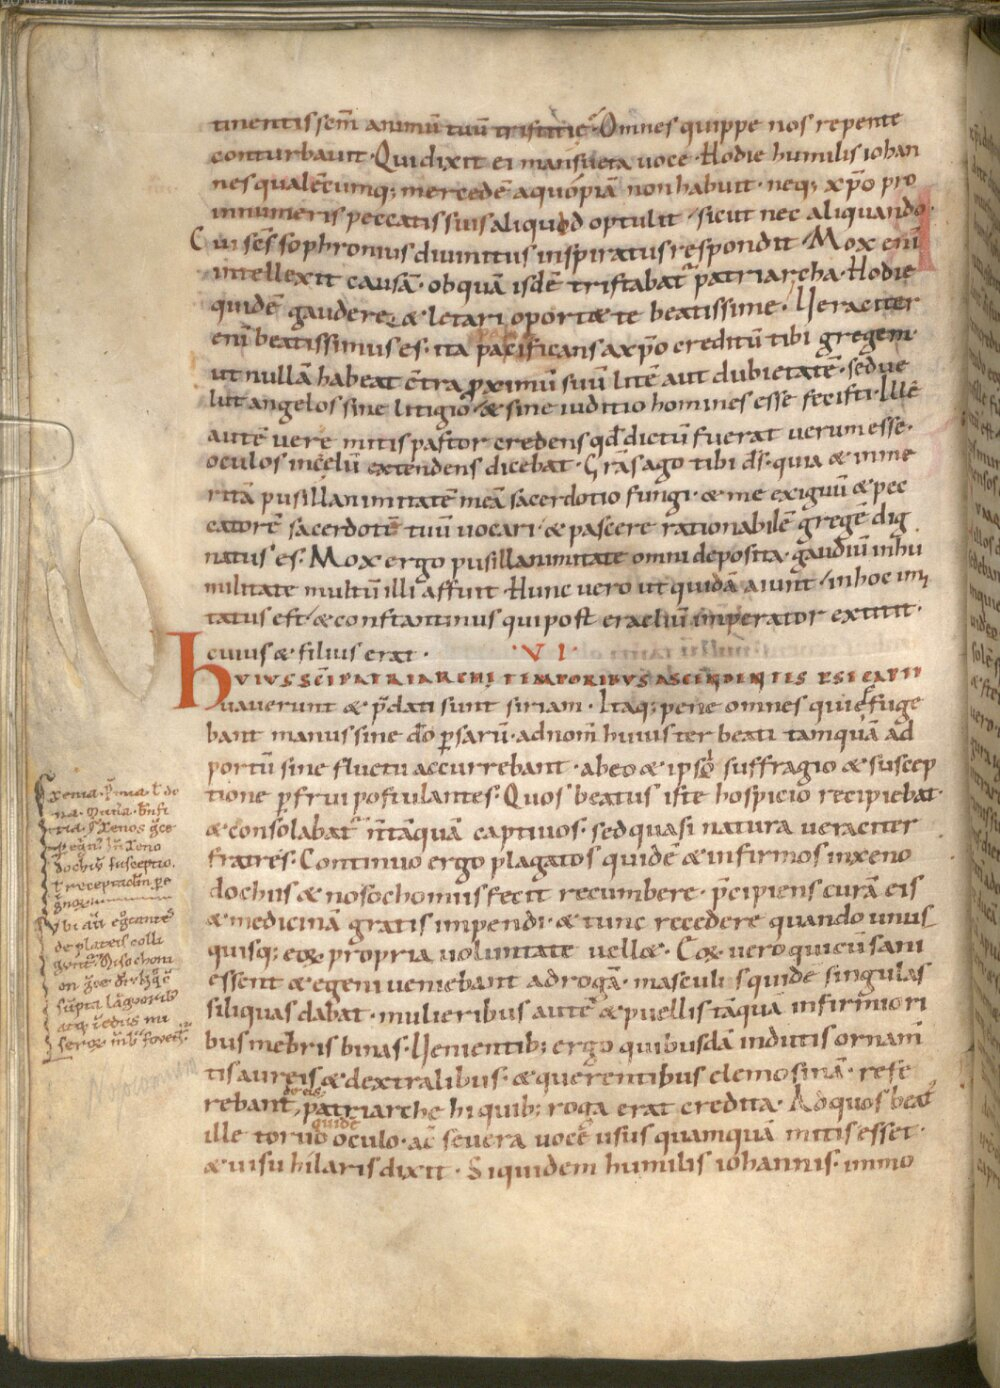 tinentissem̄ animū tuū tristitię. Omnes quippe nos repente
conturbauit. Qui dixit ei mansueta uoce. Hodie humilis iohan
nes qualecumq; mercedē a quopiā non habuit. neq; xp̄o pro
innumeris peccatis suis aliquod optulit, sicut nec aliquando.
Cui sc̄s sophronius diuinitus inspiratus respondit. Mox enī
intellexit causā. ob quā isdē tristabat patriarcha. Hodie
quidē gaudere & letari oport& te beatissime. Ueraciter
enī beatissimus es. ita pacificans a xp̄o creditū tibi gregem.
ut nullā habeat c̄tra proximū suū litē aut dubietatē. sed ue
lut angelos sine litigio & sine iuditio homines esse fecisti. Ille
autē uere mitis pastor credens qd̄ dictū fuerat uerum esse.
oculos in celū extendens dicebat. Grās ago tibi ds̄. quia & inme
ritā pusillanimitatē meā sacerdotio fungi. & me exiguū & pec
catorē sacerdotē tuū uocari. & pascere rationabilē gregē dig
natus es. Mox ergo pusillanimitate omni deposita. gaudiū in hu
militate multū illi affuit. Hunc uero ut quidā aiunt, in hoc imi
tatus est, & constantinus qui post eracliū imperator extitit.
cuius & filius erat. VI.
HUIUS SC̄I PATRIARCHI TEMPORIBUS ASCENDENTES PSE CAPTI
uauerunt & p̄dati sunt siriam. Itaq; pene omnes qui effuge
bant manus sine dō psarū. ad nom̄ huius ter beati tamquā ad
portū sine fluctu accurrebant. ab eo & ipso suffragio & suscep
tione pfrui postulantes. Quos beatus iste hospicio recipiebat.
& consolabat n̄ tāquā captiuos. sed quasi natura ueraciter
fratres. Continuo ergo plagatos quidē & infirmos in xeno
dochiis & nosochomiis fecit recumbere. p̄cipiens curā eis
& medicinā gratis impendi. & tunc recedere quando unus
quisq; eoꝝ propria uoluntate uell&. Eoꝝ uero qui cū sani
essent & egeni ueniebant ad rogā. masculis quidē singulas
siliquas dabat. mulieribus autē & puellis tāquā infirmiori
bus mēbris binas. Uenientib; ergo quibusdā indutis ornam̄
tis aureis & dextralibus. & querentibus elemosinā. refe
rebant patriarche hi quib; roga erat credita. Ad quos beat
quidē
ille toruo oculo. ac seuera uoce usus quamquā mitis esset.
& uisu hilaris dixit. Si quidem humilis iohannis. immo
Exenia
Xenos
xeno
dochiū susceptio.
de plateis colli